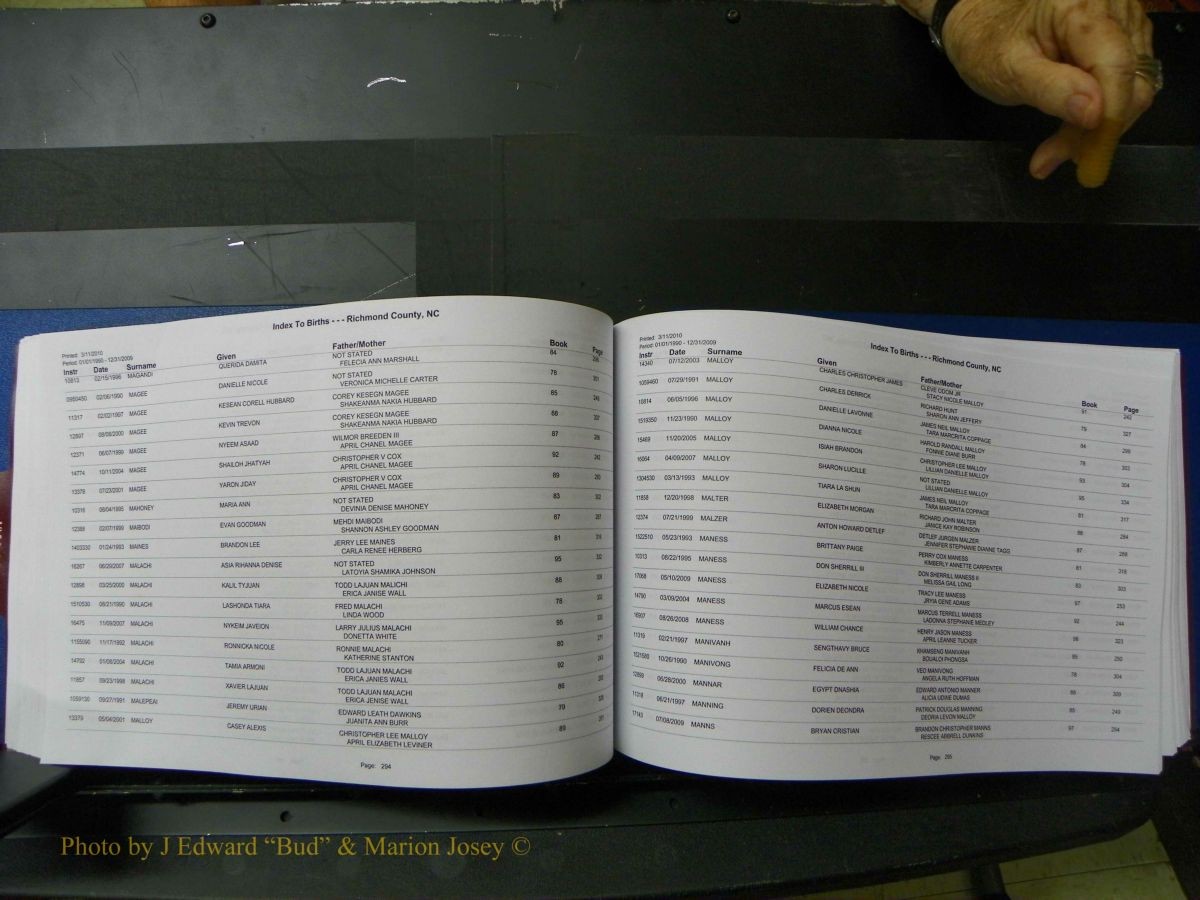 Index To Births - - - Richmond County, NC
Printed: 3/11/2010
Period: 01/01/1990 - 12/31/2009
Instr Date Surname Given Father/Mother Book Page
10813 02/15/1996 MAGANDI QUERIDA DAMITA NOT STATED 84
FELECIA ANN MARSHALL
0950450 02/06/1990 MAGEE DANIELLE NICOLE NOT STATED 78
VERONICA MICHELLE CARTER
11317 02/02/1997 MAGEE KESEAN CORELL HUBBARD COREY KESEGN MAGEE 85
SHAKEANMA NAKIA HUBBARD
12697 08/08/2000 MAGEE KEVIN TREVON COREY KESEGN MAGEE 88
SHAKEANMA NAKIA HUBBARD
12371 06/07/1999 MAGEE NYEEM ASAAD WILMOR BREEDEN III 87
APRIL CHANEL MAGEE
14774 10/11/2004 MAGEE SHAILOH JHATYAH CHRISTOPHER V COX 92
APRIL CHANEL MAGEE
13378 07/23/2001 MAGEE YARON JIDAY CHRISTOPHER V COX 89
APRIL CHANEL MAGEE
10316 MAHONEY MARIA ANN NOT STATED 83
DEVINIA DENISE MAHONEY
12388 02/07/1999 MAIBODI EVAN GOODMAN MEHDI MAIBODI 87
SHANNON ASHLEY GOODMAN
1403330 01/24/1993 MAINES BRANDON LEE JERRY LEE MAINES 81
CARLA RENEE HERBERG
16267 06/29/2007 MALACHI ASIA RIHANNA DENISE NOT STATED 95
LATOYIA SHAMIKA JOHNSON
12898 03/25/2000 MALACHI KALIL TYJUAN TODD LAJUAN MALICHI 88
ERICA JANISE WALL
1510530 08/21/1990 MALACHI LASHONDA TIARA FRED MALACHI 78
LINDA WOOD
16475 11/09/2007 MALACHI NYKEIM JAVEION LARRY JULIUS MALACHI 95
DONETTA WHITE
1155090 11/17/1992 MALACHI RONNICKA NICOLE RONNIE MALACHI 80
KATHERINE STANTON
14792 01/08/2004 MALACHI TAMIA ARMONI TODD LAJUAN MALACHI 92
ERICA JANIES WALL
11857 09/23/1998 MALACHI XAVIER LAJUAN TODD LAJUAN MALACHI 86
ERICA JENISE WALL
1059130 09/27/1991 MALEPEAI JEREMY URIAN EDWARD LEATH DAWKINS 79
JUANITA ANN BURR
13379 05/04/2001 MALLOY CASEY ALEXIS CHRISTOPHER LEE MALLOY 89
APRIL ELIZABETH LEVINER
Page: 294
Index To Births - - - Richmond County, NC
Printed: 3/11/2010
Period: 01/01/1990 - 12/31/2009
Instr Date Surname Given Father/Mother Book Page
14340 07/12/2003 MALLOY CHARLES CHRISTOPHER JAMES CLEVE ODOM JR 91 242
STACY NICOLE MALLOY
1059460 07/29/1991 MALLOY CHARLES DERRICK RICHARD HUNT 79 327
SHARON ANN JEFFERY
10814 06/05/1996 MALLOY DANIELLE LAVONNE JAMES NEIL MALLOY 84 299
TARA MARCRITA COPPAGE
1519350 11/23/1990 MALLOY DIANNA NICOLE HAROLD RANDALL MALLOY 78 303
FONNIE DIANE BURR
15469 11/20/2005 MALLOY ISIAH BRANDON CHRISTOPHER LEE MALLOY 93 304
LILLIAN DANIELLE MALLOY
16064 04/09/2007 MALLOY SHARON LUCILLE NOT STATED 95 334
LILLIAN DANIELLE MALLOY
1304530 03/13/1993 MALLOY TIARA LA SHUN JAMES NEIL MALLOY 81 317
TARA MARCRITA COPPAGE
11858 12/20/1998 MALTER ELIZABETH MORGAN RICHARD JOHN MALTER 86 284
JANICE KAY ROBINSON
12374 07/21/1999 MALZER ANTON HOWARD DETLEF DETLEF JURGEN MALZER 87 288
JENNIFER STEPHANIE DIANNE TAGG
1522510 05/23/1993 MANESS BRITTANY PAIGE PERRY COX MANESS 81 318
KIMBERLY ANNETTE CARPENTER
10313 08/22/1995 MANESS DON SHERRILL III DON SHERRILL MANESS II 83 303
MELISSA GAIL LONG
17068 05/10/2009 MANESS ELIZABETH NICOLE TRACY LEE MANESS 97 253
JRYIA GENE ADAMS
14790 03/09/2004 MANESS MARCUS ESEAN MARCUS TERRELL MANESS 92 244
LADONNA STEPHANIE MEDLEY
16907 08/26/2008 MANESS WILLIAM CHANCE HENRY JASON MANESS 96 323
APRIL LEANNE TUCKER
11319 02/21/1997 MANIVANH SENGTHAVY BRUCE KHAMSENG MANIVANH 85 250
BOUALOI PHONGSA
1521580 10/26/1990 MANIVONG FELICIA DE ANN VEO MANIVONG 78 304
ANGELA RUTH HOFFMAN
12899 06/28/2000 MANNAR EGYPT DNASHIA EDWARD ANTONIO MANNER 88 309
ALICIA UDINE DUMAS
11318 06/21/1997 MANNING DORIEN DEONDRA PATRICK DOUGLAS MANNING 85 249
DEORIA LEVON MALLOY
17143 07/08/2009 MANNS BRYAN CRISTIAN BRANDON CHRISTOPHER MANNS 97 254
RESCEE ABBRELL DUNKINS
Page: 295
Photo by J Edward “Bud” & Marion Josey ©